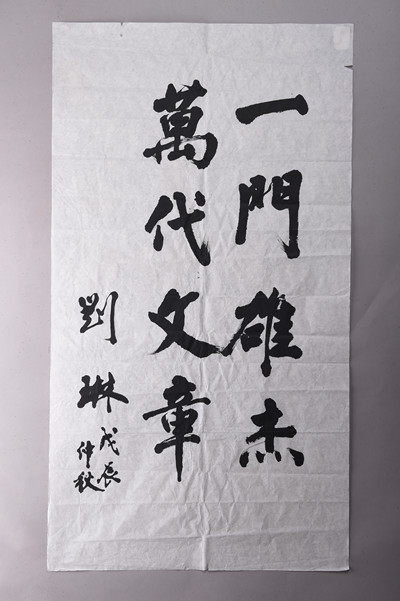 一門雄杰
萬代文章
劉琳
戊辰
仲秋